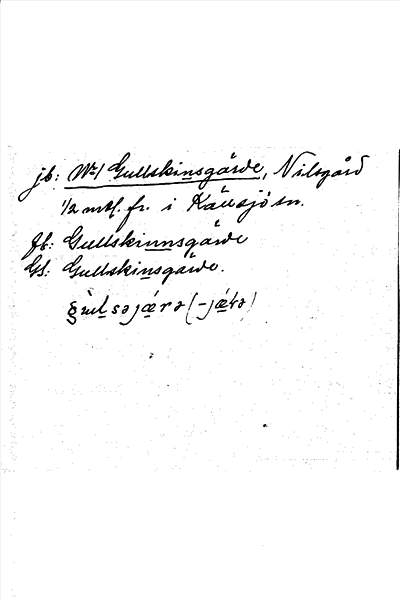 jb: No 1 Gullskinsgärde, Nilsgård
1/2 mtl. fr. i Källsjö sn.
fb: Gullskinnsgärde
Gs: Gullskinsgärde.
səjæ̀rə (-jæ̀rə)